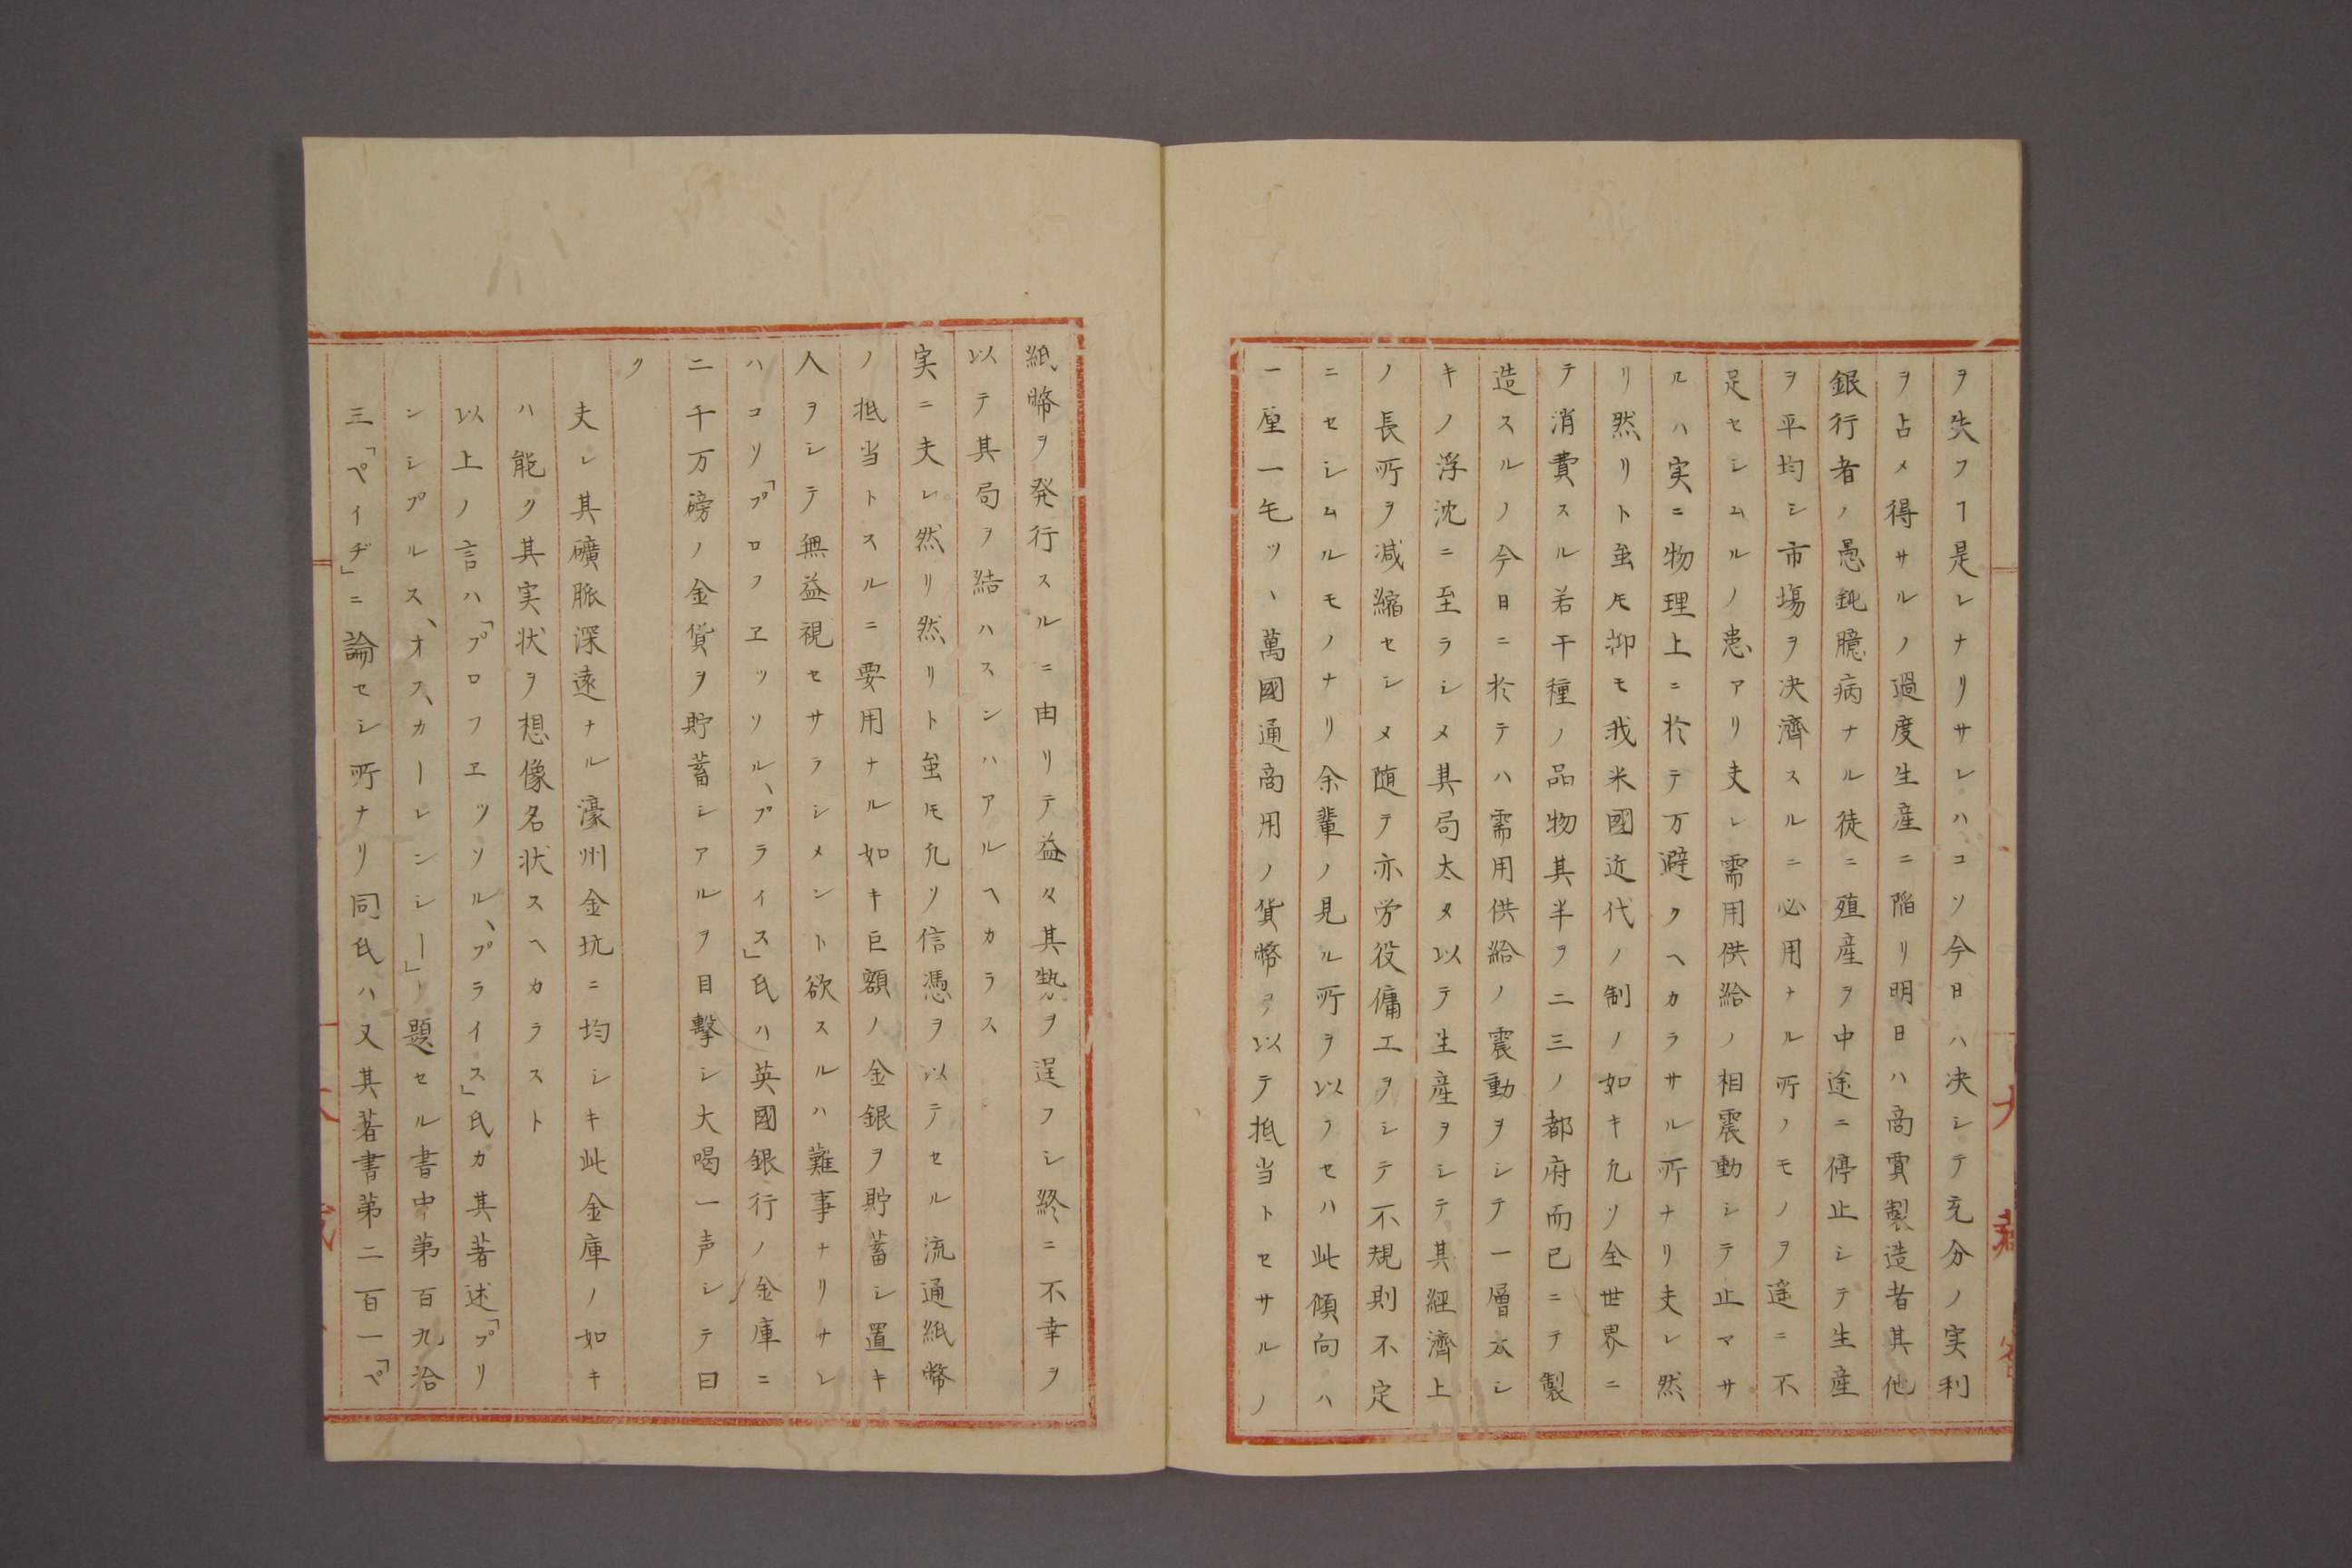 ヲ失フヿ是レナリサレハコソ今日ハ决シテ充分ノ実利
ヲ占メ得サルノ過度生産ニ陥リ明日ハ商賈製造者其他
銀行者ノ愚鈍臆病ナル徒ニ殖産ヲ中途ニ停止シテ生産
ヲ平均シ市場ヲ决濟スルニ必用ナル所ノモノヲ遥ニ不
足セシムルノ患アリ夫レ需用供給ノ相震動シテ止マサ
ルハ実ニ物理上ニ於テ万避クヘカラサル所ナリ夫レ然
リ然リト虽𪜈抑モ我米國近代ノ制ノ如キ凢ソ全世界ニ
テ消費スル若干種ノ品物其半ヲ二三ノ都府而已ニテ製
造スルノ今日ニ於テハ需用供給ノ震動ヲシテ一層太シ
キノ浮沈ニ至ラシメ其局太タ以テ生産ヲシテ其経濟上
ノ長所ヲ减縮セシメ随テ亦労役傭工ヲシテ不規則不定
ニセシムルモノナリ余輩ノ見ル所ヲ以ラセハ此傾向ハ
一厘一毛ツヽ萬國通商用ノ貨幣ヲ以テ抵当トセサルノ
紙幣ヲ発行スルニ由リテ益々其勢ヲ逞フシ終ニ不幸ヲ
以テ其局ヲ結ハスンハアルヘカラス
実ニ夫レ然リ然リト虽𪜈凢ソ信憑ヲ以テセル流通紙幣
ノ抵当トスルニ要用ナル如キ巨額ノ金銀ヲ貯蓄シ置キ
人ヲシテ無益視セサラシメント欲スルハ難事ナリサレ
ハコソ「プロフヱッソル、プライス」氏ハ英國銀行ノ金庫ニ
二千万磅ノ金貨ヲ貯蓄シアルヲ目擊シ大喝一声シテ曰
ク
夫レ其礦脈深遠ナル濠州金坑ニ均シキ此金庫ノ如キ
ハ能ク其実状ヲ想像名状スヘカラスト
以上ノ言ハ「プロフヱッソル、プライス」氏カ其著述「プリ
ンシプルス、オフ、カーレンシー」ト題セル書中第百九拾
三「ペイヂ」ニ論セシ所ナリ同氏ハ又其著書第二百一「ペ